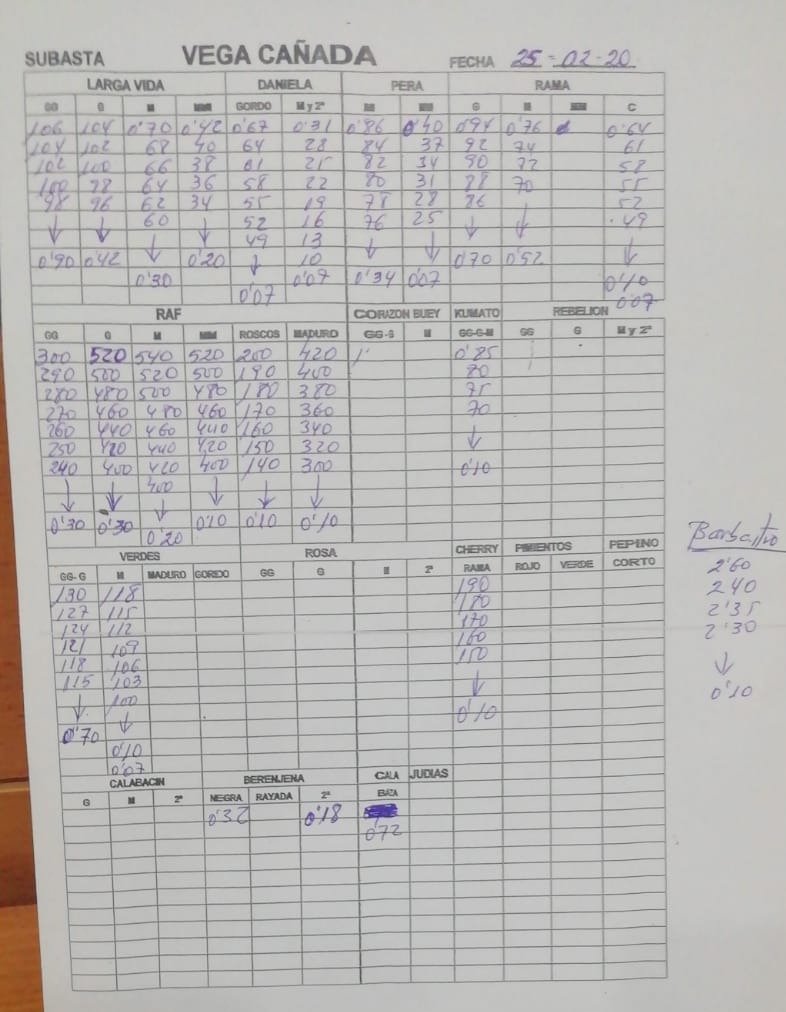 SUBASTA VEGA CAÑADA FECHA 25-02-20
LARGA VIDA DANIELA PERA RAMA
GG G M MM GORDO M y 2ª M MM G M MM C
106 104 0'70 0'42 0'67 0'31 0'86 0'40 0'94 0'76 0'64
104 102 68 40 64 28 84 37 92 74 61
102 100 66 38 61 25 82 34 90 72 58
100 98 64 36 58 22 80 31 88 70 55
98 96 62 34 55 19 78 28 86 52
↓ ↓ 60 ↓ 52 16 76 25 ↓ ↓ 49
↓ 49 13 ↓ ↓ ↓
0'90 0'42 0'20 ↓ 10 0'70 0'52
0'30 0'09 0'34 0'07 0'10
0'07 0'07
RAF CORAZON BUEY KUMATO REBELION
GG G M MM ROSCOS MADURO GG-G M GG-G-M GG G M y 2ª
300 520 540 520 200 420 0'85
290 500 520 500 190 400 80
280 480 500 480 180 380 75
270 460 480 460 170 360 70
260 440 460 440 160 340 ↓
250 420 440 420 150 320
240 400 420 400 140 300 0'10
↓ ↓ 400 ↓ ↓ ↓
↓
0'30 0'30 0'10 0'10 0'10
0'20
VERDES ROSA CHERRY PIMIENTOS PEPINO
GG-G M MADURO GORDO GG G M 2ª RAMA ROJO VERDE CORTO
130 118 190
127 115 180
124 112 170
121 109 160
118 106 150
115 103 ↓
↓ 100
0'70 ↓ 0'10
0'10
0'07
Barbastro
2'60
240
2'35
2'30
↓
0'10
CALABACIN BERENJENA CALA JUDIAS
G M 2ª NEGRA RAYADA 2ª BAZA
0'32 0'18
0'72